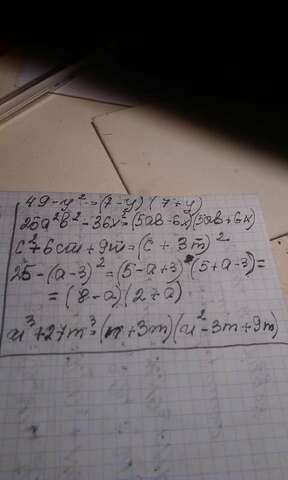 49-y²=(7-y)(7+y)
25a²b²-36x²=(5ab-6x)(5ab+6x)
c²+6cm+9m=(c+3m)²
25-(a-3)²=(5-a+3)(5+a-3)=
=(8-a)(2+a)
n³+27m³=(n+3m)(n²-3m+9m)